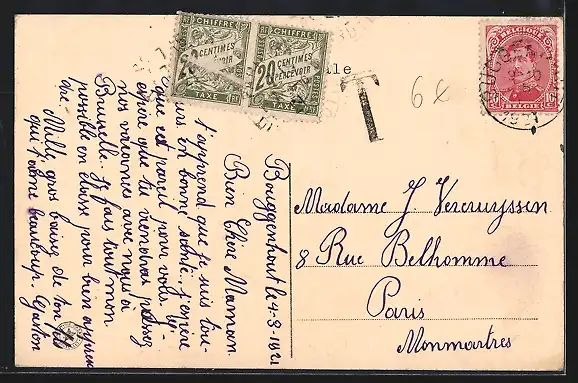 CHIFFRE
20 CENTIMES
A PERCEVOIR
TAXE
CHIFFRE
20 CENTIMES
A PERCEVOIR
TAXE
T
6x
BELGIQUE
10 10
BELGIE
Bouggenhout le 4-3-1921
Bien Chère Maman.
t'apprend que je suis tou-
jours en bonne santé. j'espère
que est pareil pour vous. j'es-
père que tu viendras passez
nos vacances avec nous à
Bruxelle. je fais tout mon
possible en classe pour bien appren
dre.
Mille gros baisez de ton fils
qui t'aime beaucoup. Gaston
Madame J Vercruyssen
8 Rue Belhomme
Paris
Monmartres